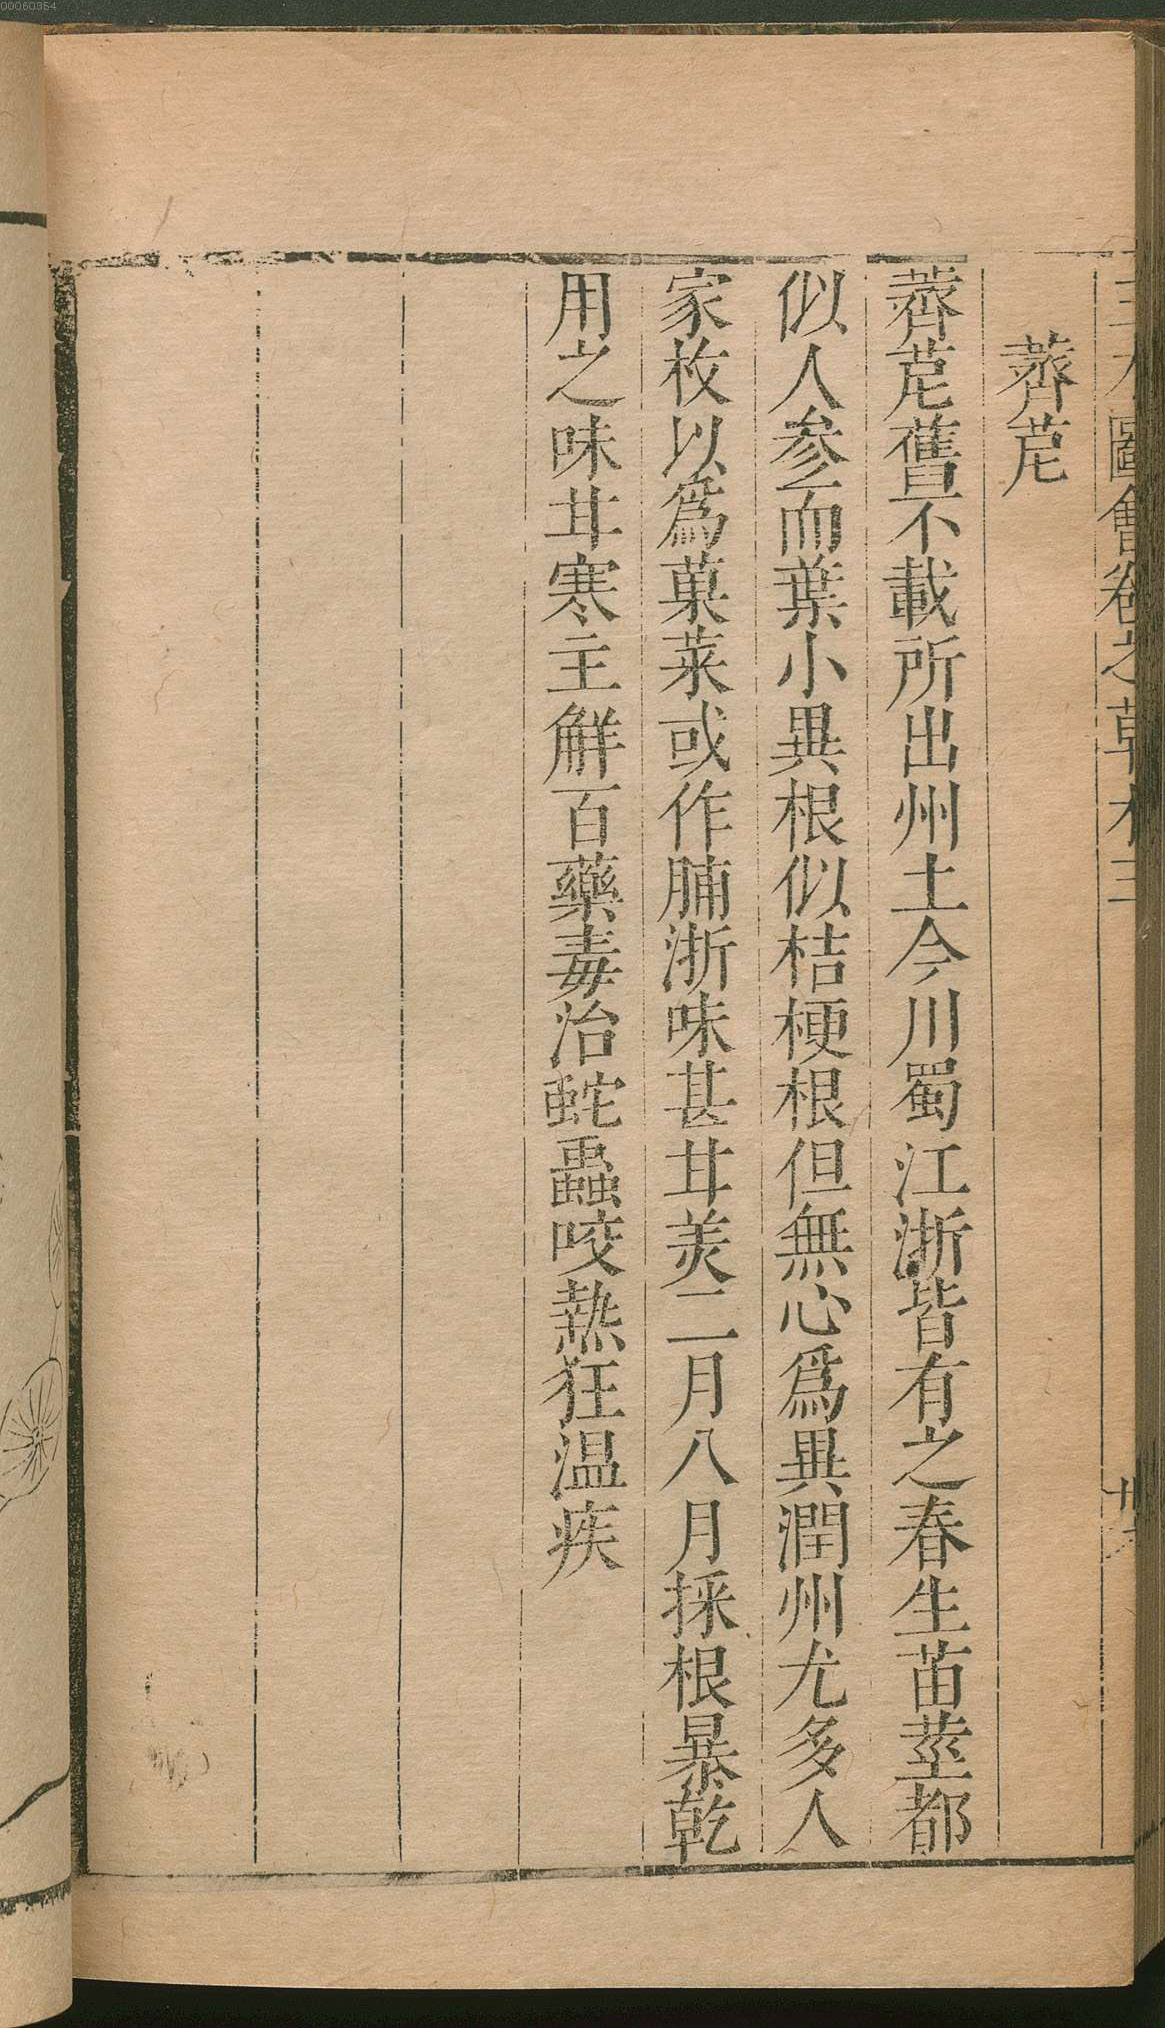 00060354
三才圖會卷之草木三
薺苨
薺苨舊不載所出州土今川蜀江浙皆有之春生苗莖都
似人參而葉小異根似桔梗根但無心爲異潤州尤多人
家枚以爲菓菜或作脯浙味甚甘美二月八月採根暴乾
用之味甘寒主解百藥毒治蛇蟲咬熱狂温疾